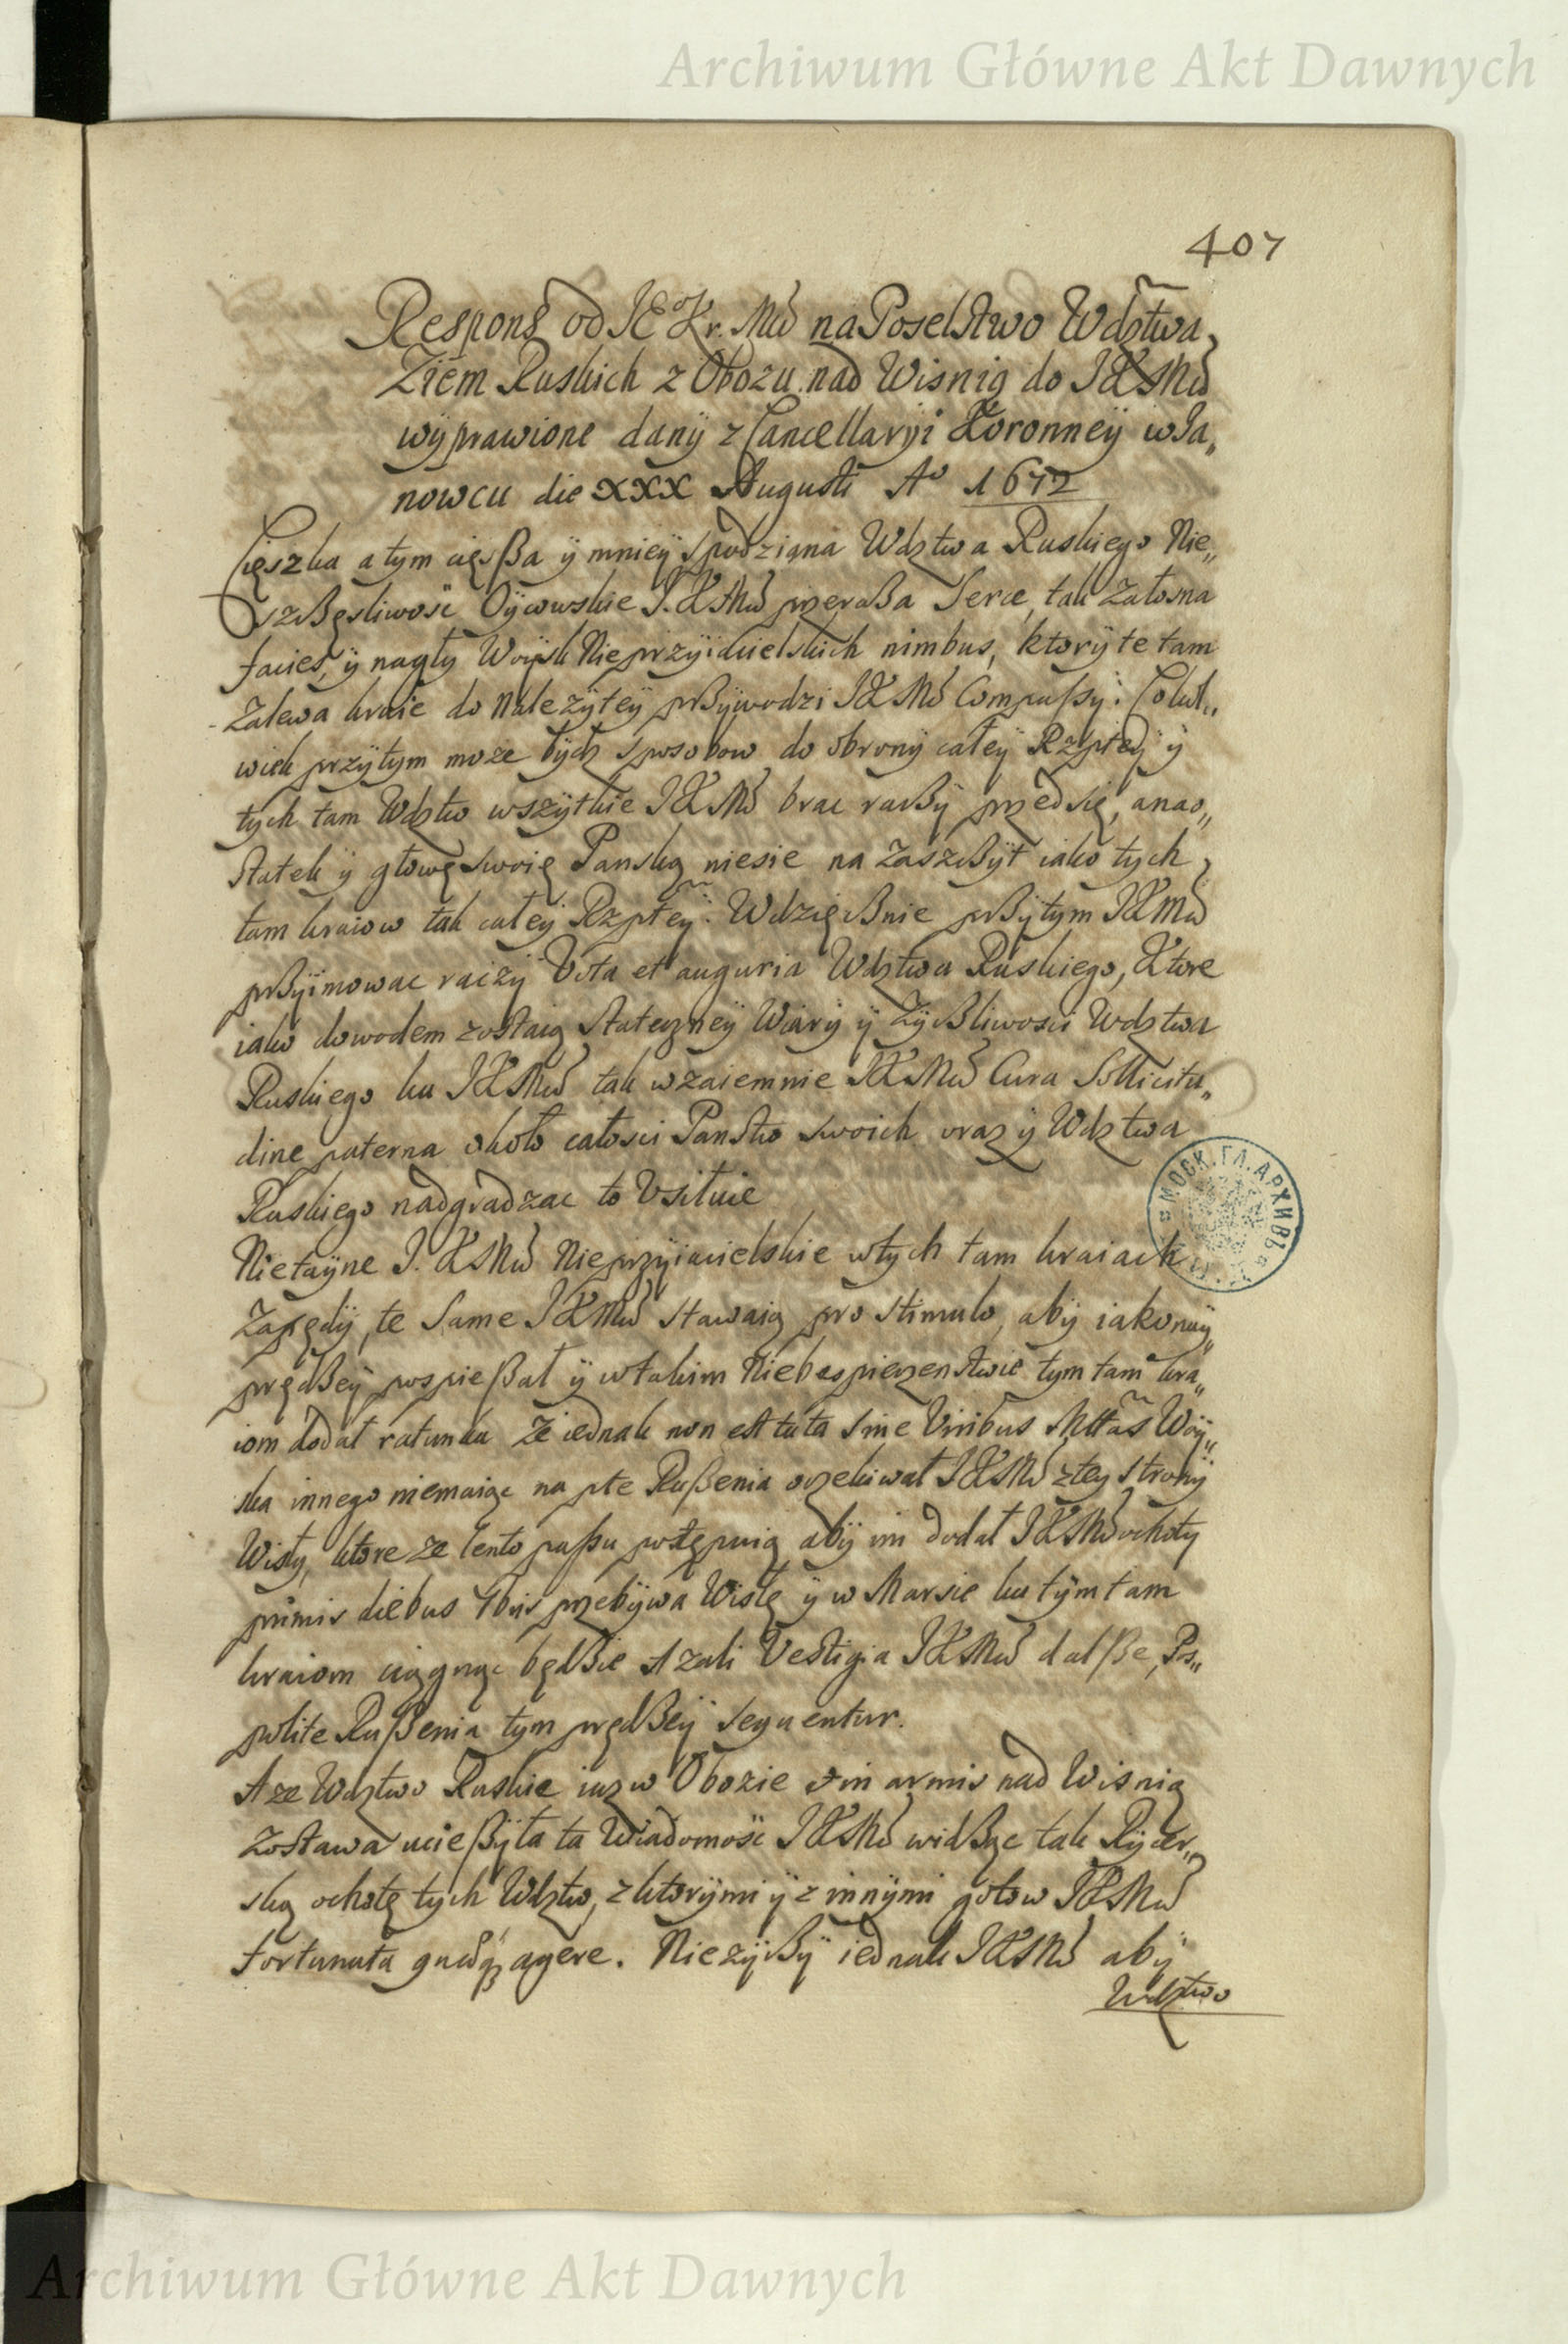 Archiwum Główne Akt Dawnych
407
Respons od JE° Kr. Mći na Poselstwo Wdztwa,
Ziem Ruskich z Obozu nad Wisnią do JKMśći
wyprawione dany z Cancellaryi Koronney w Ja„
nowcu die XXX Augusti A° 1672
Cięszka a tym cięsßa ÿ mnieÿ spodziana Wdztwa Ruskiego Nie„
szßęsliwość Oÿcowskie J.KMści przeraßa Serce, tak Załosna
facies, ÿ nagłÿ Woÿsk Nieprzyiacielskich nimbus, ktorÿ te tam
Zalewa kraie do należÿteÿ prßÿwodzi JKMść Compaßÿi. Cokol„
wiek przÿtym może bÿdz sposobow do obronÿ całeÿ Rzpłteÿ ÿ
tych tam Wdztw wszÿtkie JKMść brac racßÿ przedsię, a nao„
statek ÿ głowę swoię Panską niesie na Zaszcßÿt iako tych
tam kraiow tak całeÿ Rzpłteÿ. Wdzięcßnie prßÿtym JKMść
prßÿimowac raczÿ Vota et auguria Wdztwa Ruskiego, Ktore
iako dowodem zostaią stateczneÿ Wiarÿ ÿ Zÿcßliwosci Wdztwa
Ruskiego ku JKMści tak wzaiemnie JKMść Cura Sollicitu„
dine paterna około całosci Panstw swoich oraz ÿ Wdztwa
Ruskiego nadgradzac to Vsiłuie
Nietaÿne J.KMści Nieprzyiacielskie w tych tam kraiach
Zapędÿ, te same JKMści stawaią pro stimulo, abÿ iako naÿ„
prędßeÿ pospießał ÿ w takim Niebespieczenstwie tym tam kra„
iom dodał ratunku Że iednak non est tuta sine Viribus Mttas Woÿ„
ska innego niemaiąc na pte Rußenia oczekiwał JKMść z teÿ stronÿ
Wisłÿ, ktore ze lento paßu postępuią abÿ im dodał JKMść ochotÿ
primis diebus 7bris przebÿwa Wisłę ÿ w Marsie ku tÿm tam
kraiom ciągnąc będßie Azali Vestigia JKMści dalße, Pos„
polite Rußenia tym prędßeÿ sequentur.
A ze Wdztwo Ruskie iuz w Obozie et in armis nad Wisnią
zostawa ucießÿła ta Wiadomość JKMść widßąc tak Rÿcer„
ską ochotę tych Wdztw, z ktorÿmi ÿ z innÿmi gotow JKMść
fortunata quæq; agere. Nie zÿcßÿ iednak JKMść abÿ
Wdztwo
МОСК. ГЛ. АРХИВЪ
Archiwum Główne Akt Dawnych